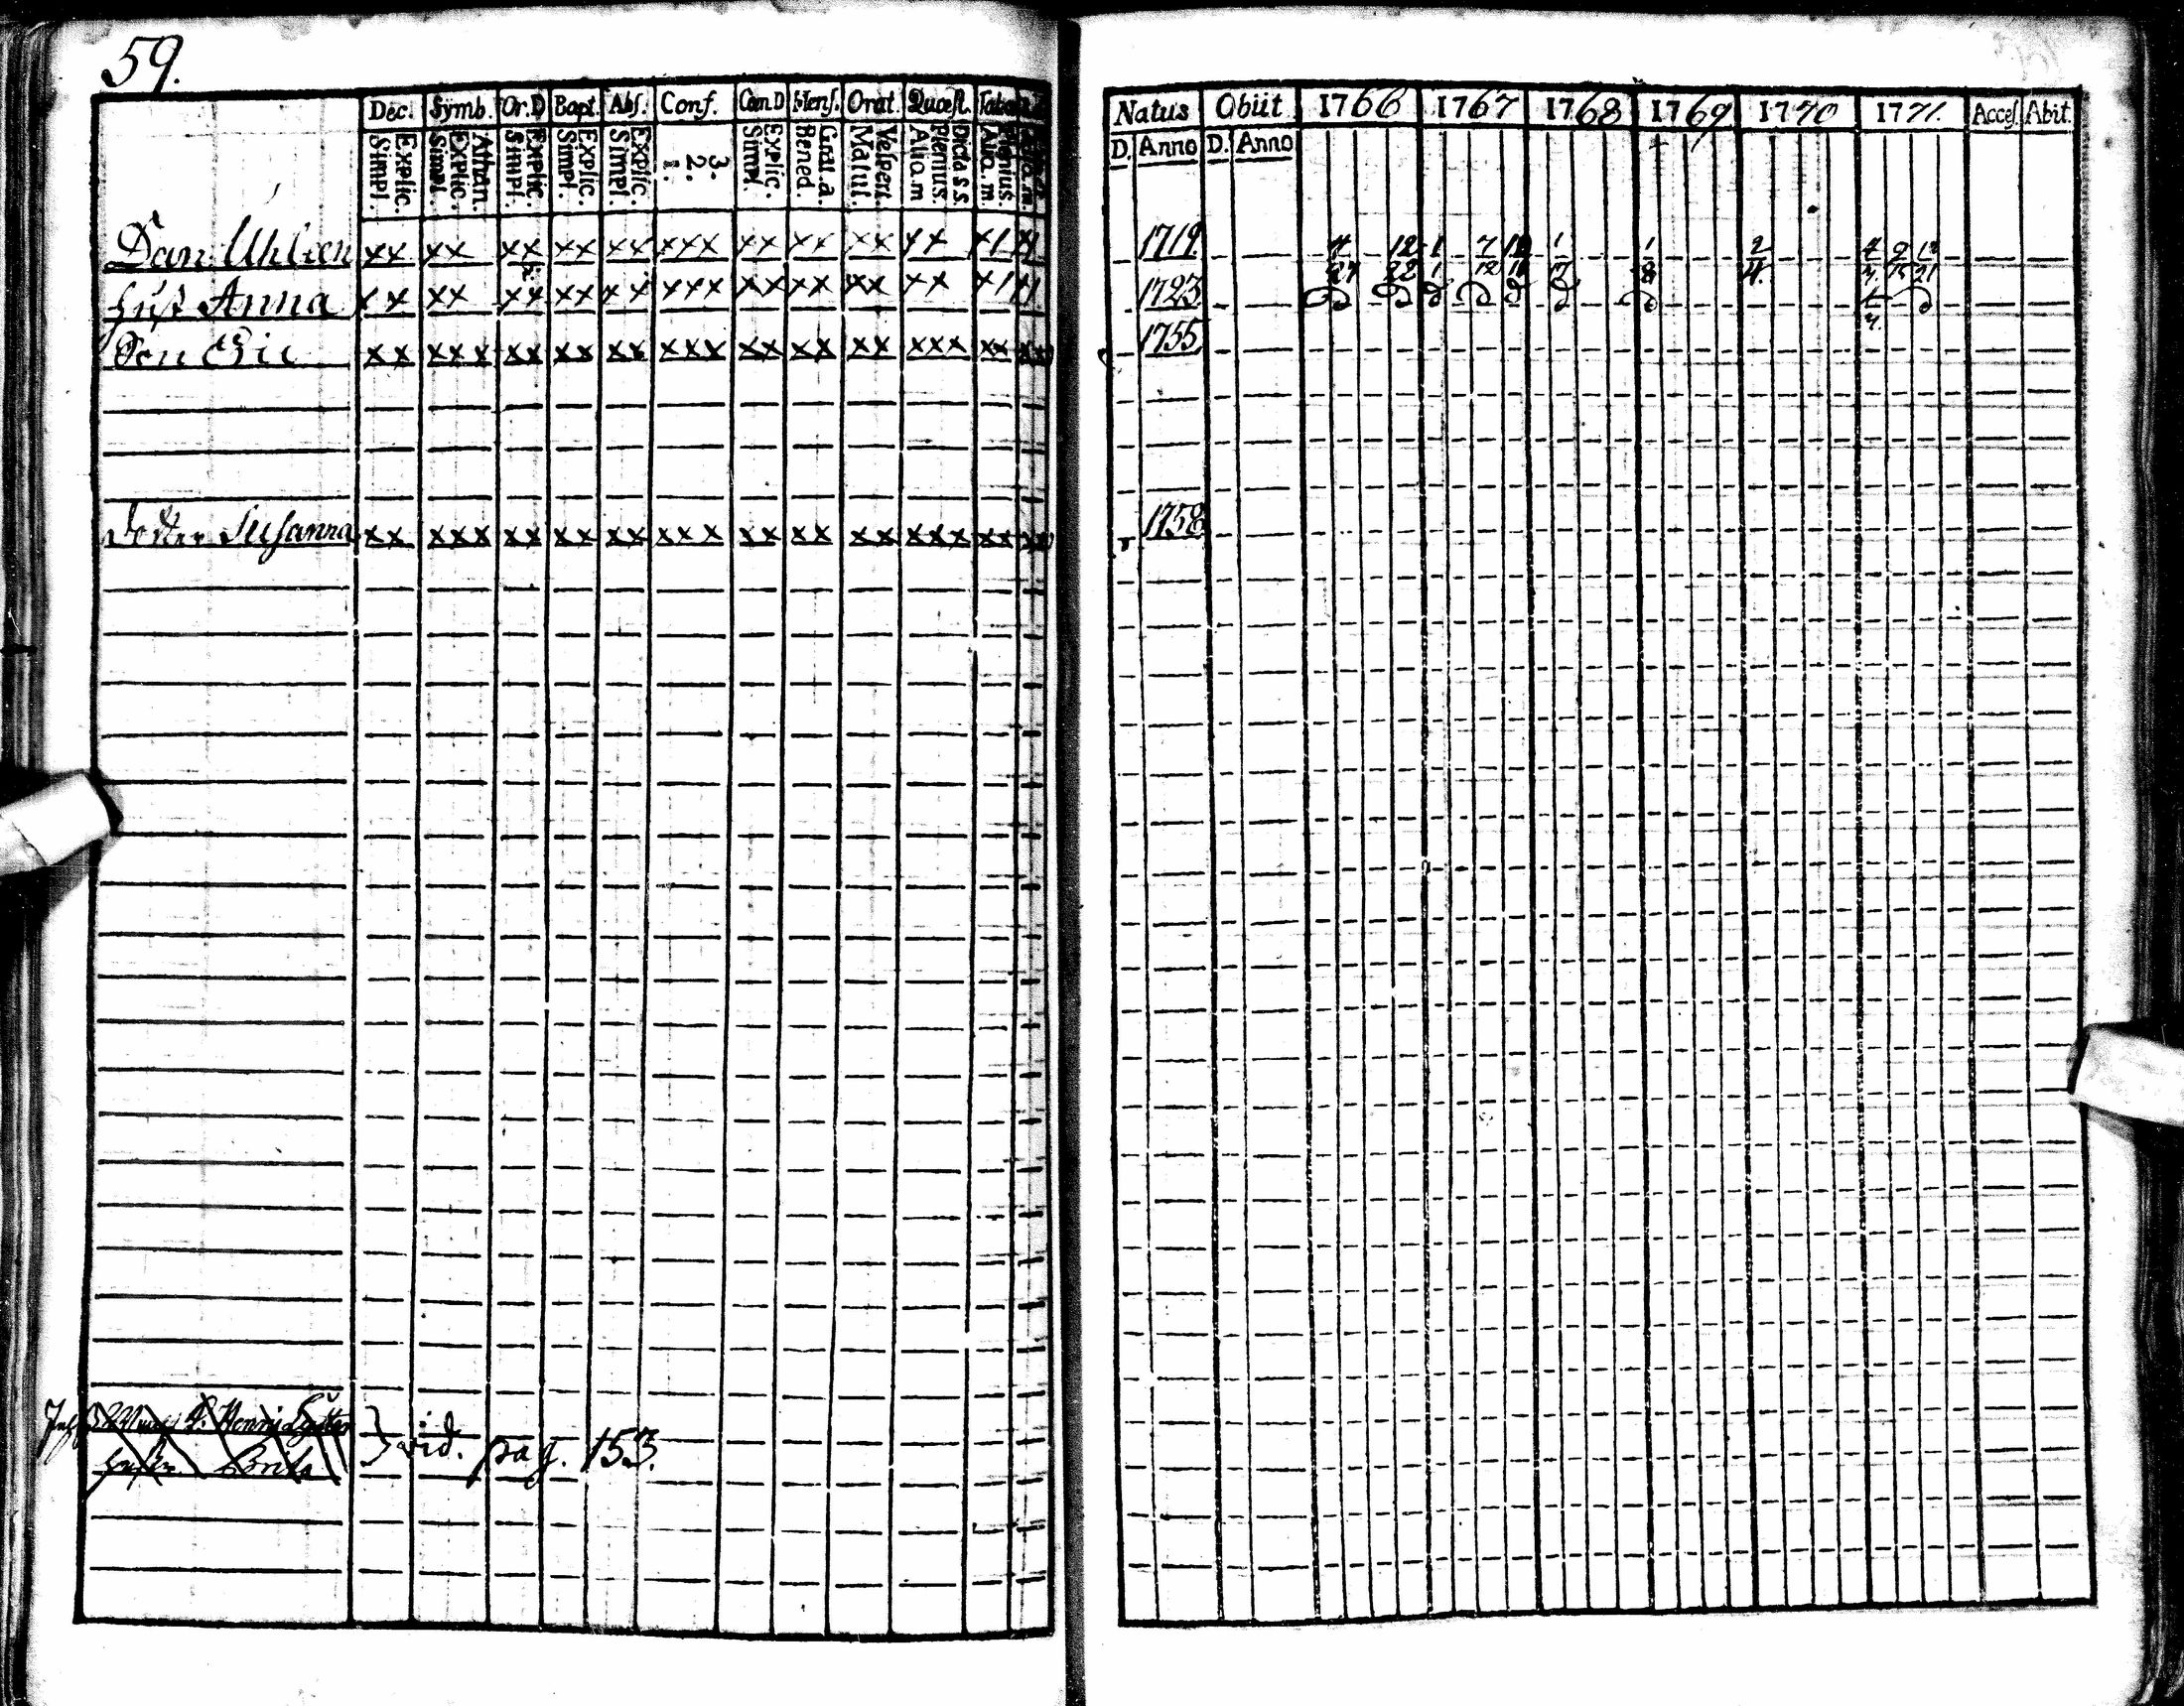 59.
Dec. Symb. Or. D Bapt. Abs. Conf. Cœn D Mens. Orat. Quæst. Tab
Simpl. Explic. Simpl. Explic. Athan. Simpl. Explic. Simpl. Explic. Simpl. Explic. 1. 2. 3. Simpl. Explic. Bened. Grat. a. Matut. Vespert. Alia.m Plenius. Dicta S.S. Alia.m. Plenius.
Dan Uhlien xx xx xx xx xx xxx xx xx xx xx x1 x1
Hust Anna xx xx xx xx xx xxx xx xx xx xx x1 x1
Son Eric xx xxx xx xx xx xxx xx xx xx xxx xx xx
Dotter Susanna xx xxx xx xx xx xxx xx xx xx xxx xx xx
vid. pag. 153.
Natus Obiit 1766 1767 1768 1769 1770 1771. Acces. Abit.
D. Anno D. Anno
1719. 4 12 1 7 12 1 1 2 4 9 12
1723 27 22 1 12 17 8 4.
1755
1758